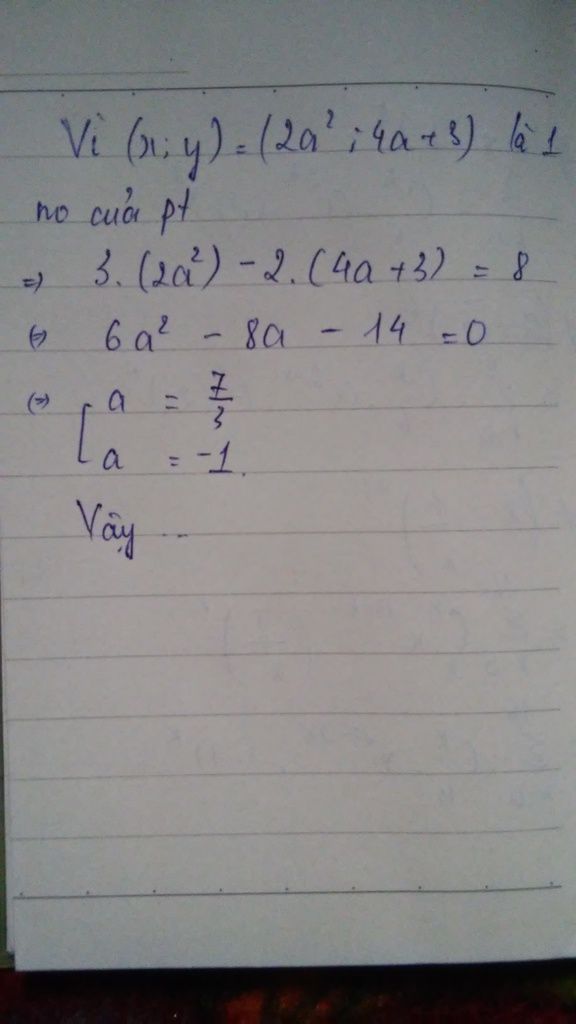 Vì (x; y) = (2a² ; 4a+3) là 1
no của pt
=> 3.(2a²) - 2.(4a+3) = 8
<=> 6a² - 8a - 14 = 0
<=> [ a = 7/3
a = -1.
Vậy ...